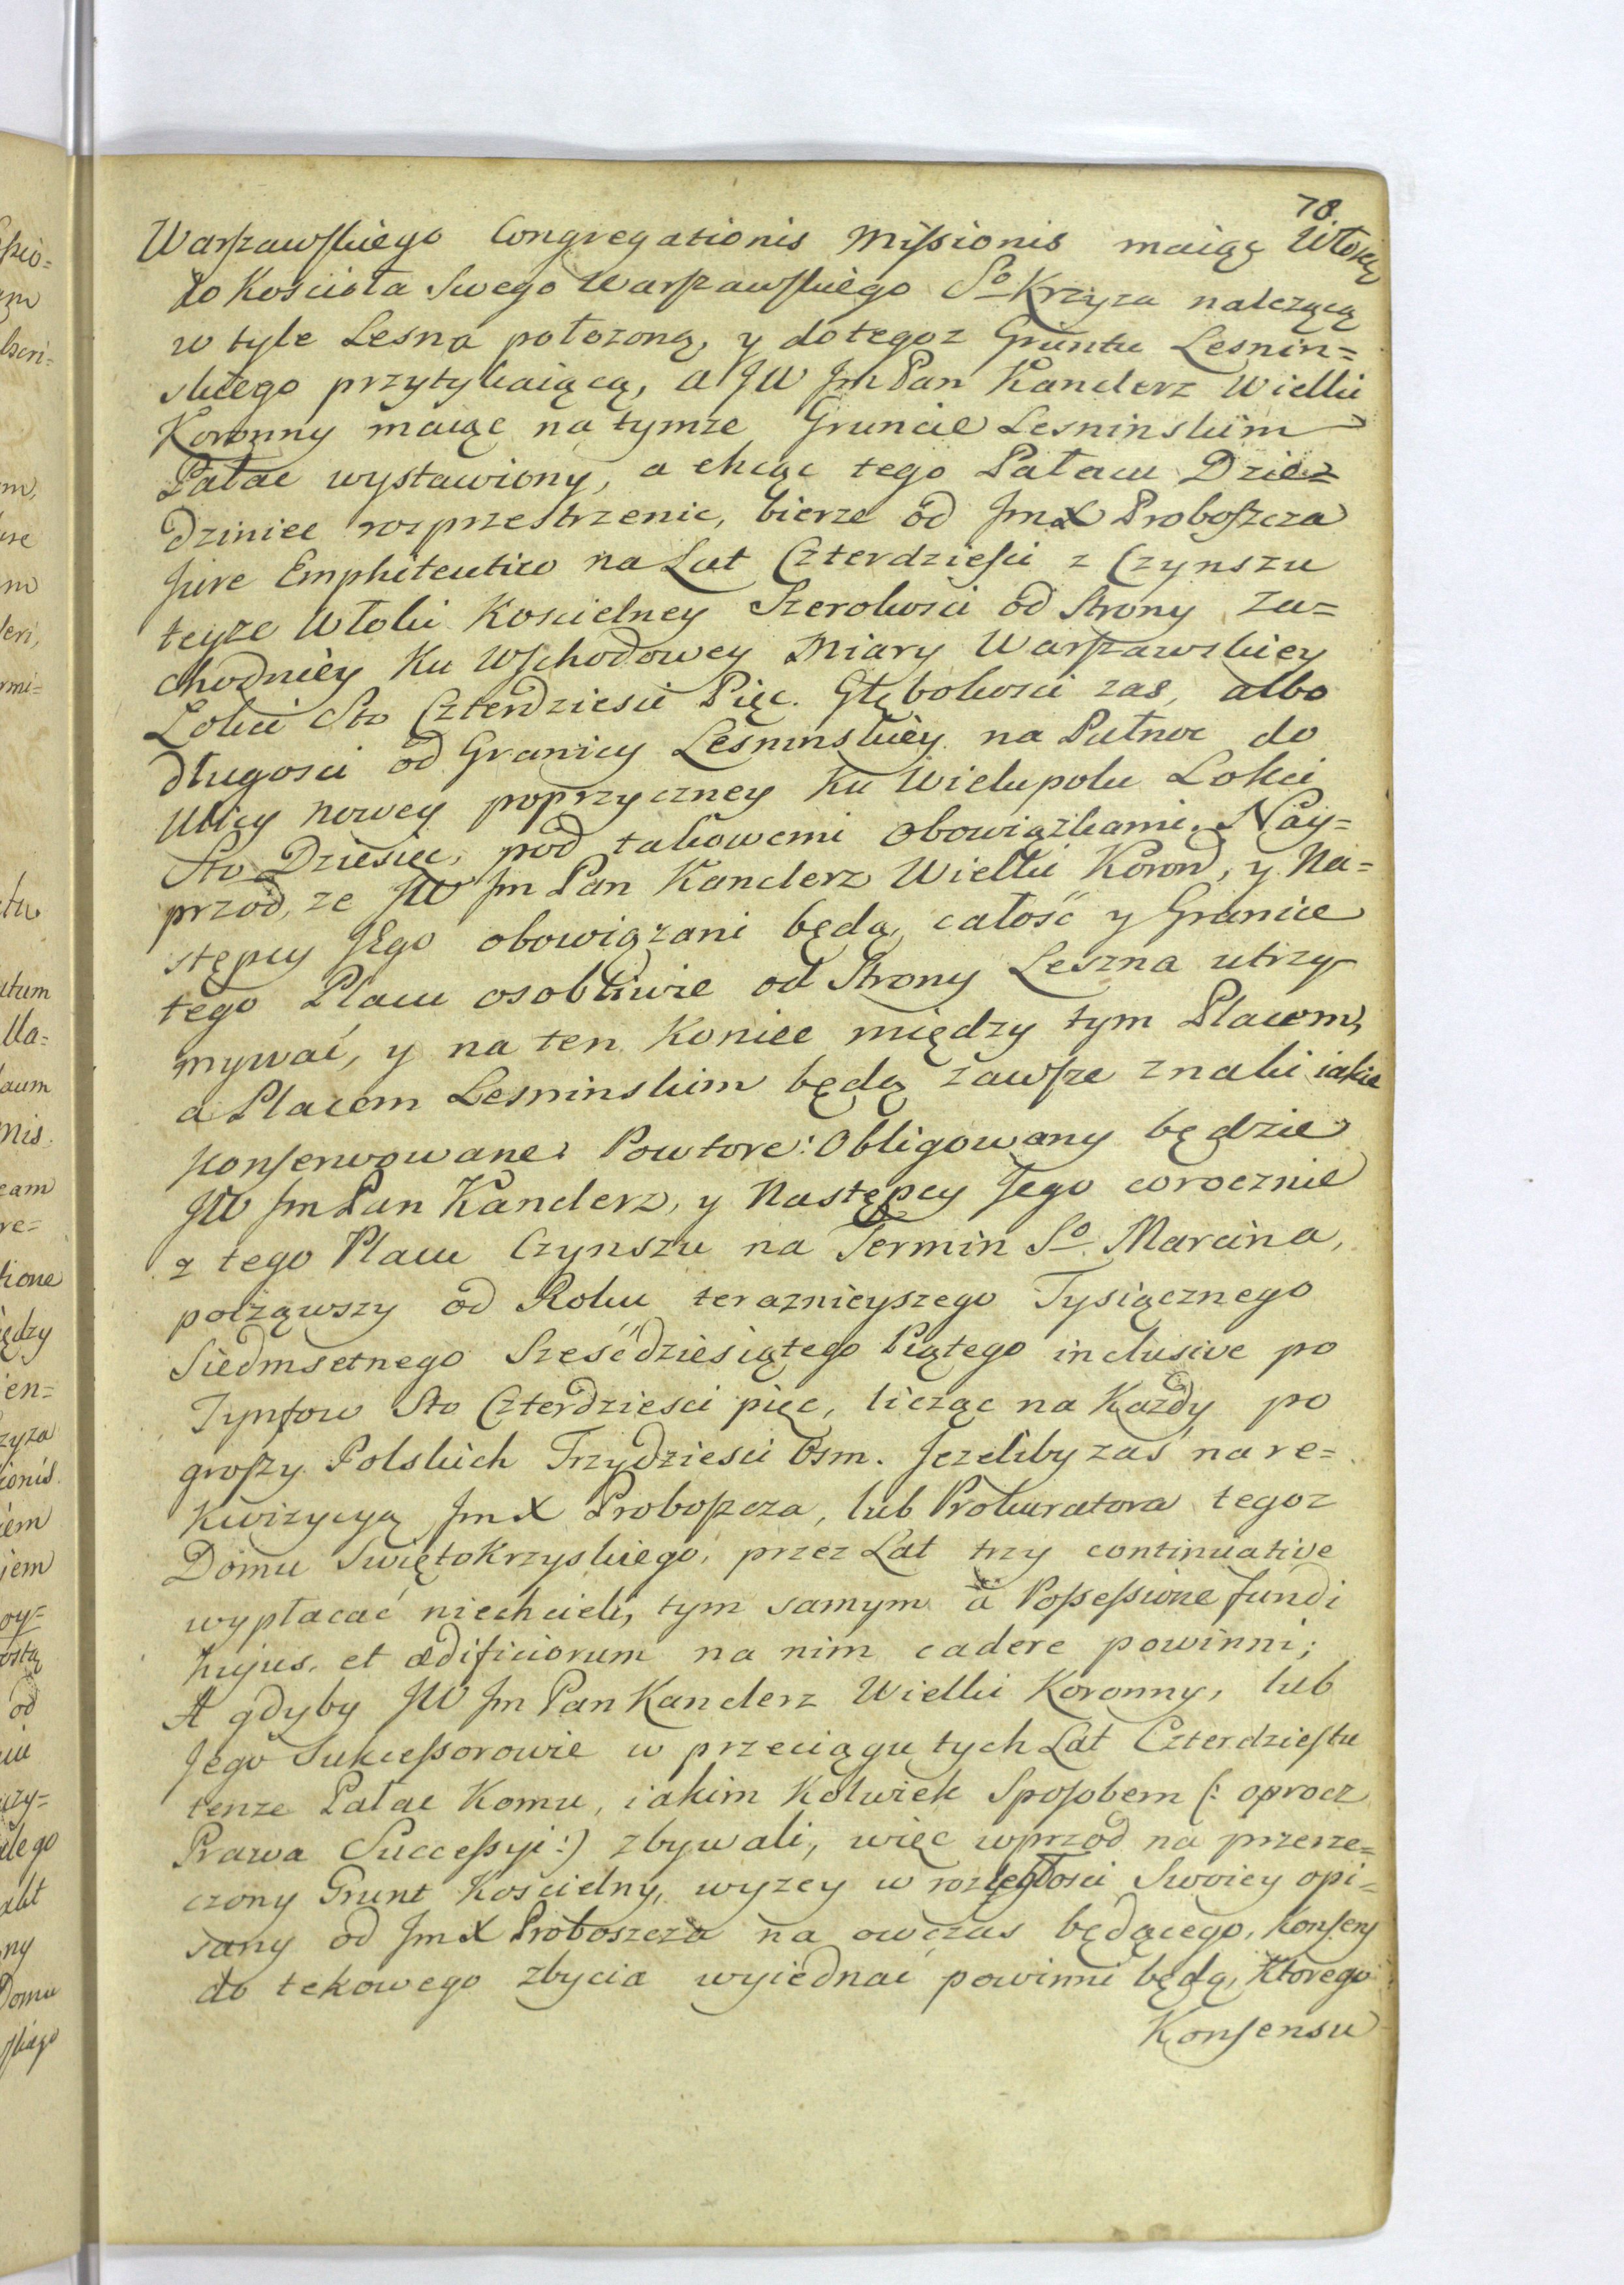 78.
Warszawskiego Congregationis Missionis maiąę Włokę
do Kościoła Swego Warszawskiego So Krzyza nalezącą
w tyle Lesna połozoną, y do tegoz Gruntu Lesnin=
skiego przytykaiącą, a JW Jm Pan Kanclerz Wielki
Koronny maiąc na tymze Gruncie Lesninskim
Pałac wystawiony, a chcąc tego Pałacu Dzie=
dziniec rosprzestrzenic, bierze od Jmx Proboszcza
Jure Emphiteutico na Lat Czterdziesci z Czynszu
teyze Włoki Koscielney Szerokosci od Strony Za=
chodniey Ku Wschodowey Miary Warszawskiey
Lokci Sto Czterdziesci Pięc. Głębokosci zas, albo
długosci od Granicy Lesninskiey na Pułnoc do
Ulicy nowey poprzyczney Ku Wielupolu Lokci
Sto Dziesięc, pod takowemi obowiązkami. Nay=
przod, ze JW Jm Pan Kanclerz Wielki Koron, y Na=
stępcy Jego obowiązani będą, całość y Granice
tego Placu osobliwie od Strony Leszna utrzy-
mywać, y na ten Koniec między tym Placem,
a Placem Lesninskim będą zawsze znaki iakie
Konserwowane. Powtore: Obligowany będzie
JW Jm Pan Kanclerz, y Następcy Jego corocznie
z tego Placu Czynszu na Termin So Marcina,
począwszy od Roku teraznieyszego Tysiącznego
Siedmsetnego Sześćdziesiątego Piątego inclusive po
Tynfow Sto Czterdziesci pięc, licząc na Kazdy po
groszy Polskich Trzydziesci Osm. Jezeliby zaś na re=
kwizycyą Jmx Proboszcza, lub Prokuratora tegoz
Domu Swiętokrzyskiego, przez Lat trzy continuative
wypłacać niechcieli, tym samym à Possessione fundi
hujus, et ædificiorum na nim cadere powinni;
A gdyby JW Jm Pan Kanclerz Wielki Koronny, lub
Jego Sukcessorowie w przeciągu tych Lat Czterdziestu
tenze Pałac Komu, iakim Kolwiek Sposobem (: oprocz
Prawa Successyi :) zbywali, więc wprzod na przerze=
czony Grunt Kościelny, wyzey w rozległosci Swoiey opi=
sany od Jmx Proboszcza na owczas będącego, Konsens
do tekowego zbycia wyiednać powinni będą, Ktorego
Konsensu